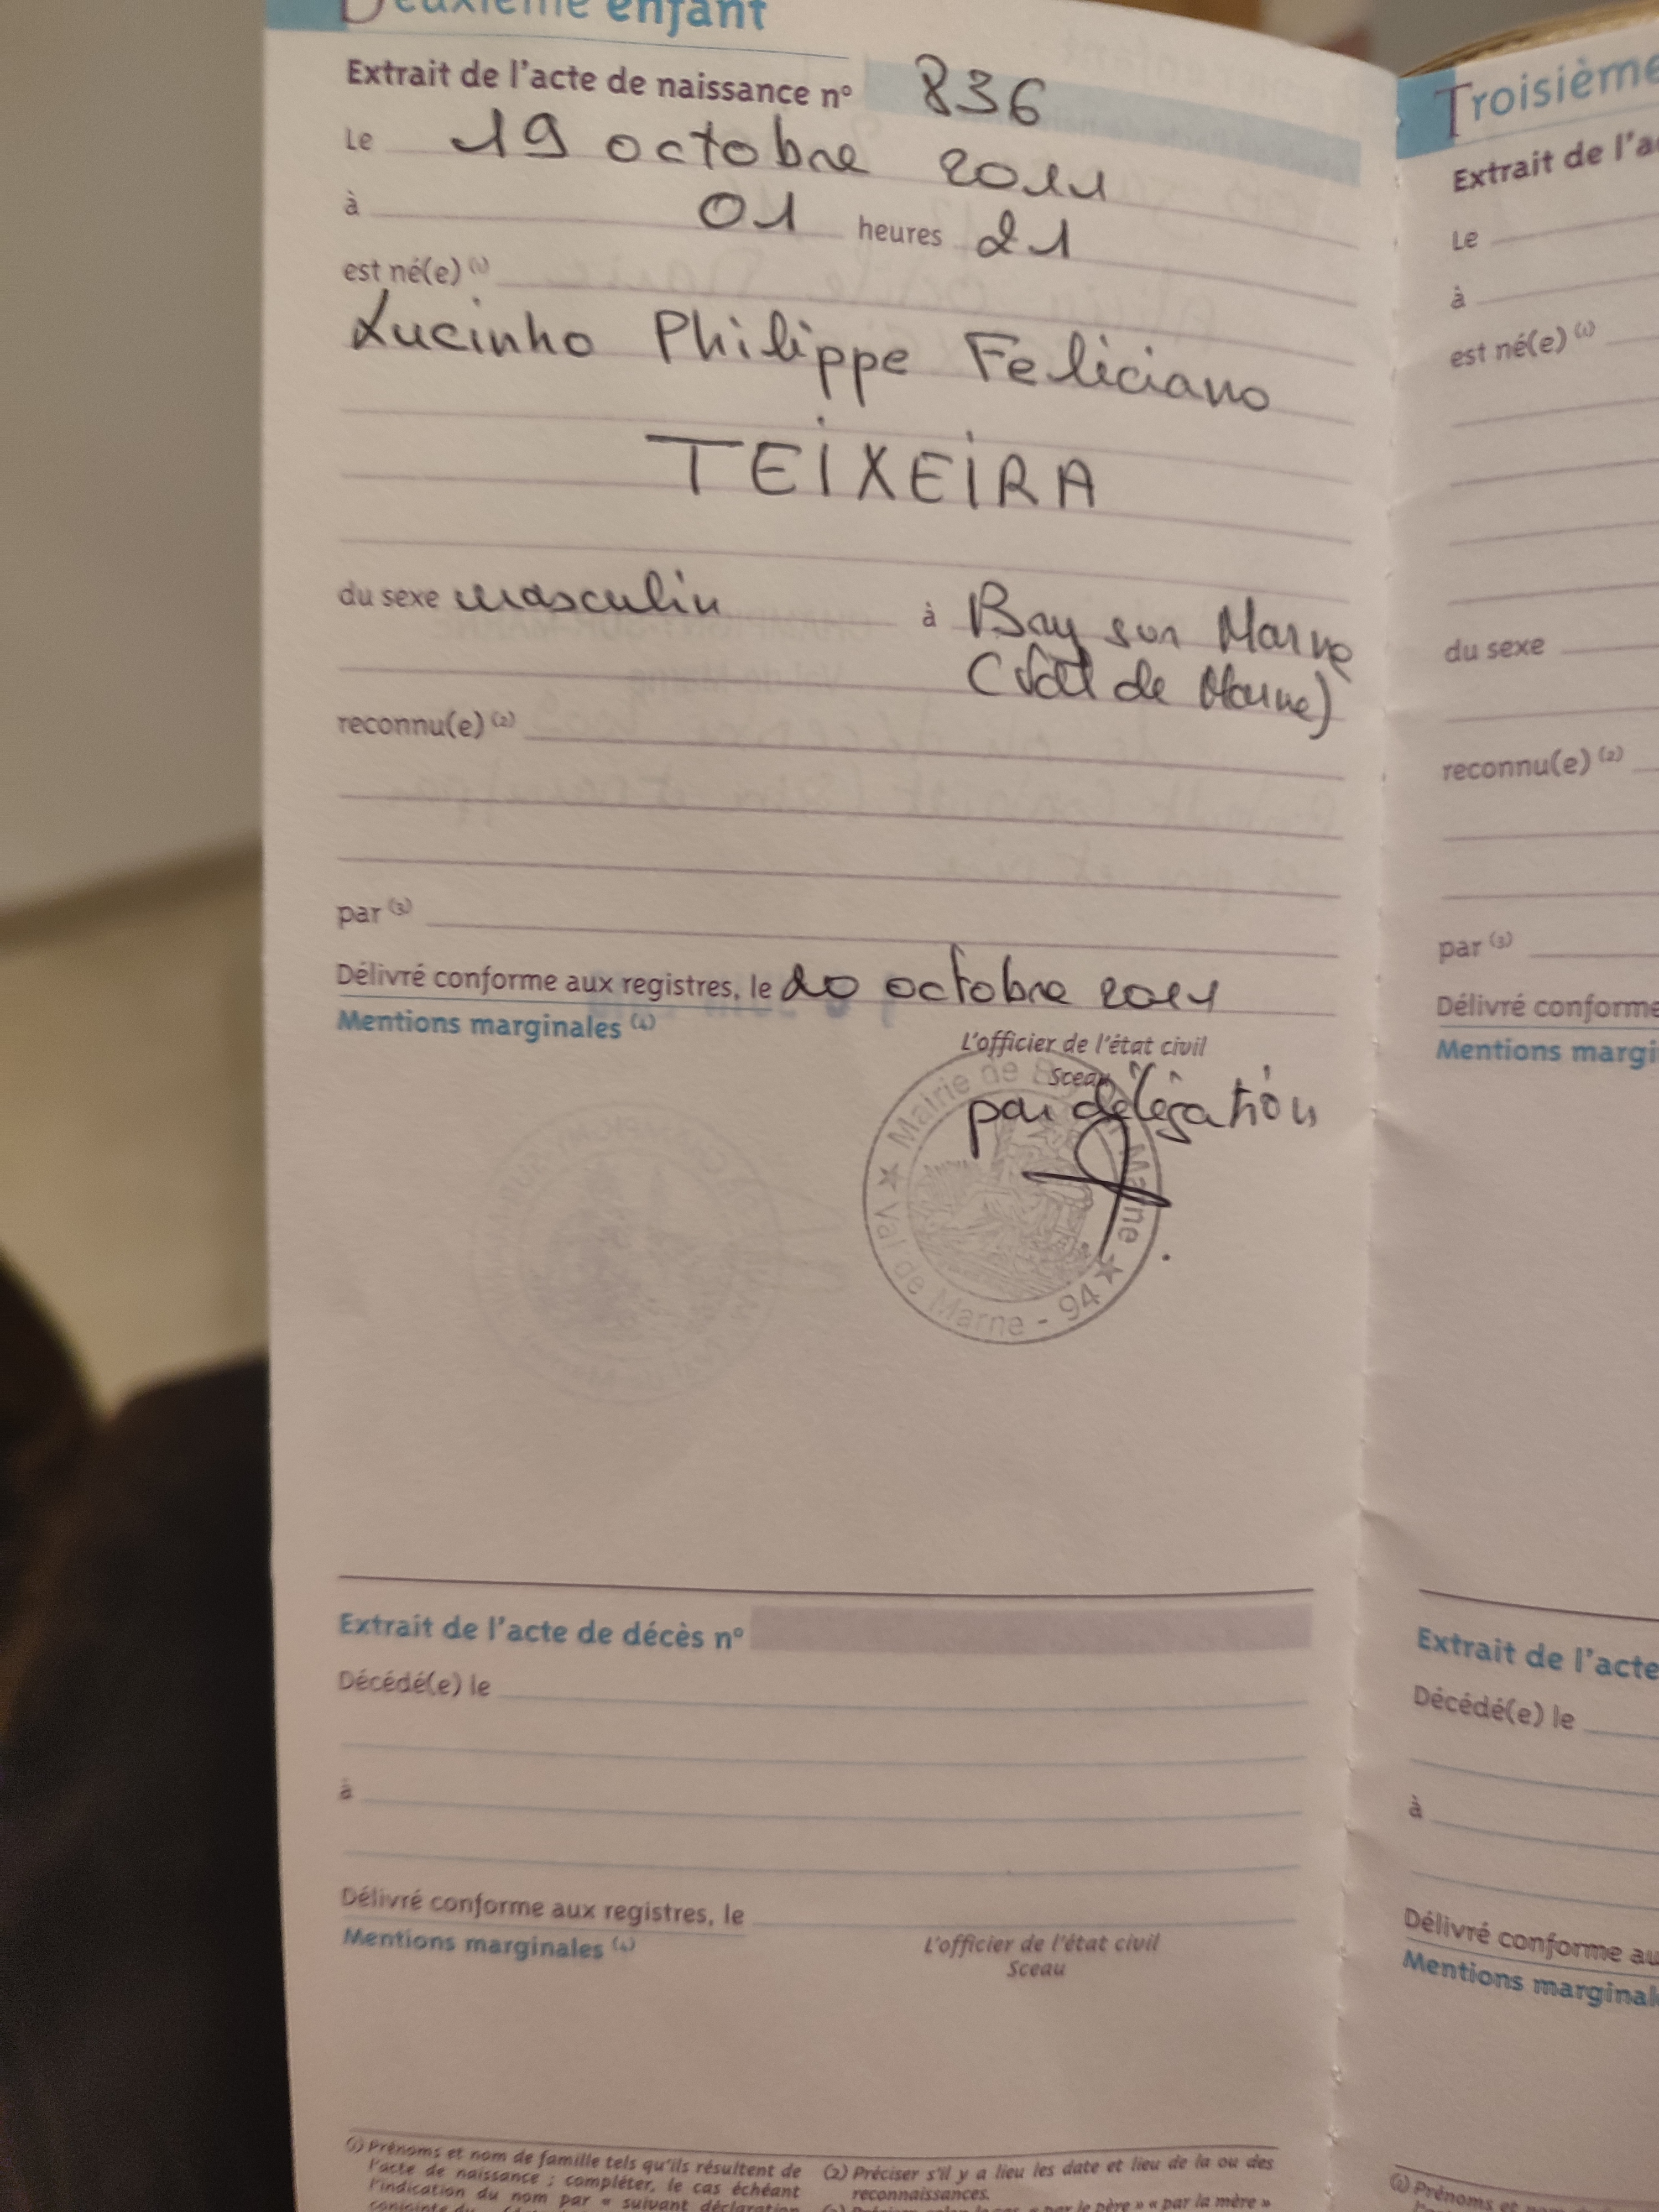 Deuxième enfant
Extrait de l'acte de naissance n° 836
Le 19 octobre 2011
à 01 heures 21
est né(e) (1)
Lucinho Philippe Feliciano
TEIXEIRA
du sexe masculin à Bry sur Marne
(Val de Marne)
reconnu(e) (2)
par (3)
Délivré conforme aux registres, le 20 octobre 2011
Mentions marginales (4)
L'officier de l'état civil
Sceau
par délégation
Mairie de Bry sur Marne
Val de Marne - 94
Extrait de l'acte de décès n°
Décédé(e) le
à
Délivré conforme aux registres, le
Mentions marginales (4)
L'officier de l'état civil
Sceau
(1) Prénoms et nom de famille tels qu'ils résultent de
l'acte de naissance ; compléter, le cas échéant
l'indication du nom par « suivant déclaration
conjointe du
(2) Préciser s'il y a lieu les date et lieu de la ou des
reconnaissances.
« par le père » « par la mère »
Troisième
Extrait de l'a
Le
à
est né(e) (1)
du sexe
reconnu(e) (2)
par (3)
Délivré conforme
Mentions margi
Extrait de l'acte
Décédé(e) le
à
Délivré conforme au
Mentions marginal
(1) Prénoms et nom